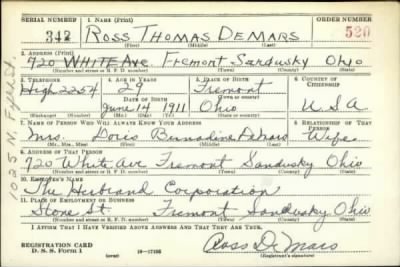 SERIAL NUMBER 1. NAME (Print) ORDER NUMBER
342 ROSS THOMAS DEMARS 520
(First) (Middle) (Last)
2. ADDRESS (Print)
720 WHITE Ave Fremont Sandusky Ohio
(Number and street or R. F. D. number) (Town) (County) (State)
3. TELEPHONE 4. AGE IN YEARS 5. PLACE OF BIRTH 6. COUNTRY OF CITIZENSHIP
High 2254 29 Fremont
DATE OF BIRTH (Town or county)
June 14 1911 Ohio U.S.A
(Exchange) (Number) (Mo.) (Day) (Yr.) (State or country)
7. NAME OF PERSON WHO WILL ALWAYS KNOW YOUR ADDRESS 8. RELATIONSHIP OF THAT PERSON
Mrs. Doris Bernadine DeMars Wife
(Mr., Mrs., Miss) (First) (Middle) (Last)
9. ADDRESS OF THAT PERSON
720 White Ave Fremont Sandusky Ohio
(Number and street or R. F. D. number) (Town) (County) (State)
10. EMPLOYER'S NAME
The Herbrand Corporation
11. PLACE OF EMPLOYMENT OR BUSINESS
Stone St. Fremont Sandusky Ohio
(Number and street or R. F. D. number) (Town) (County) (State)
I AFFIRM THAT I HAVE VERIFIED ABOVE ANSWERS AND THAT THEY ARE TRUE.
REGISTRATION CARD Ross DeMars
D. S. S. Form 1 (over) 16—17105 (Registrant's signature)
1025 N. Fifth St.